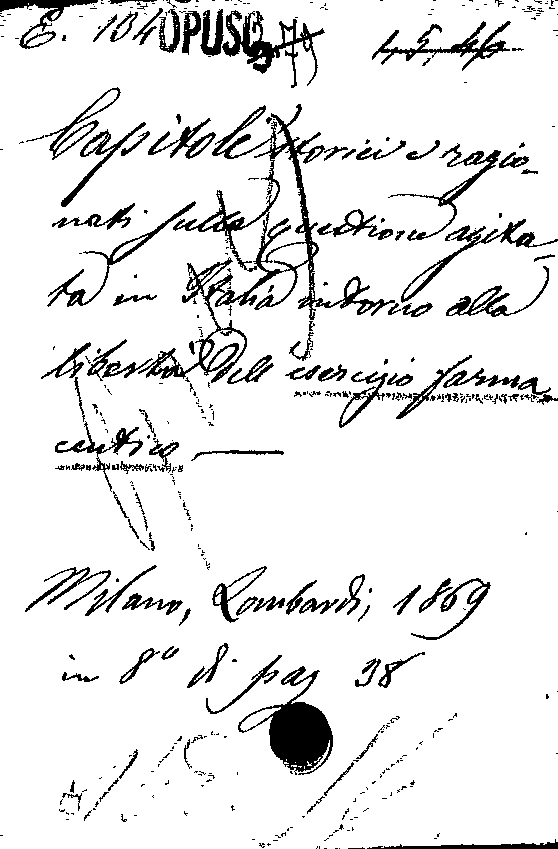 E. 104 OPUSC 1.5.46
Capitoli storici e ragio-
nati sulla questione agita-
ta in Italia intorno alla
libertà dell esercizio farma-
ceutico —
Milano, Lombardi, 1869
in 8° di pag 38